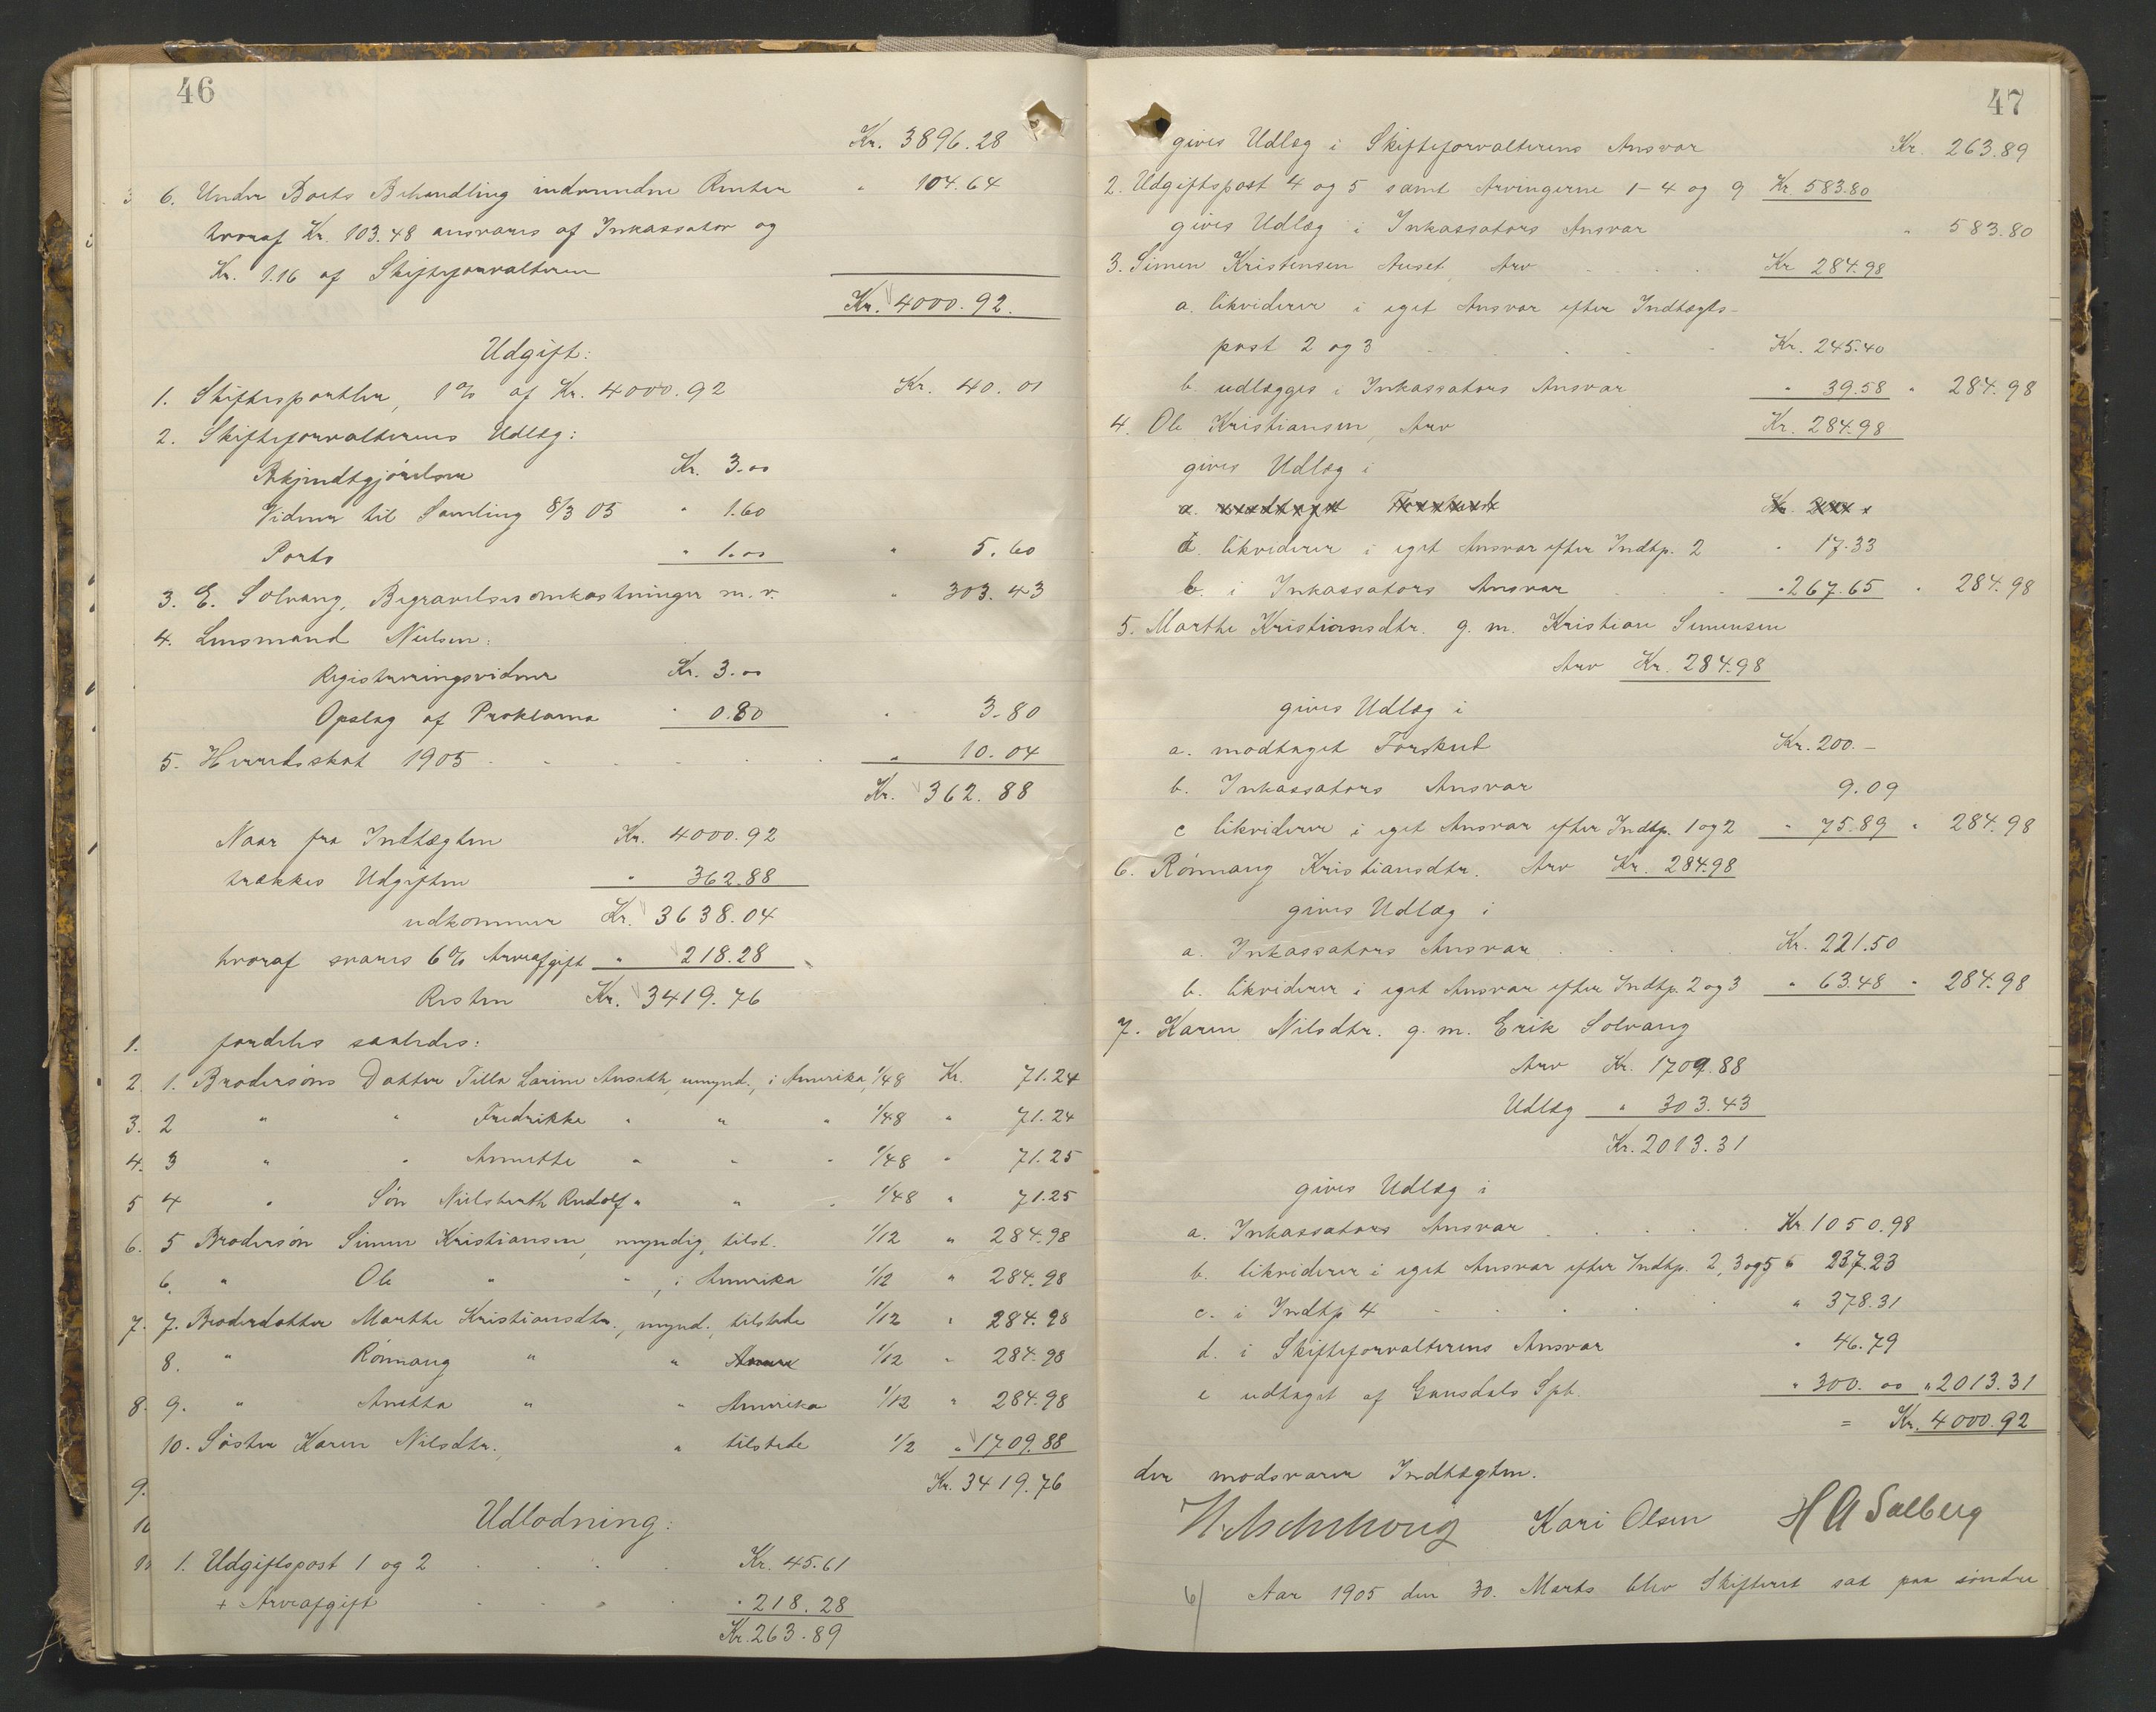 46
Kr. 3896.28
6. Under Boets Behandling indvundne Renter " 104.64
hvoraf Kr. 103.48 ansvares af Inkassator og
Kr. 1.16 af Skifteforvalteren
Kr. 4000.92.
Udgift:
1. Skiftesportler, 1% af Kr. 4000.92 Kr. 40.01
2. Skifteforvalterens Udlæg:
Bekjendtgjørelser Kr. 3.00
Vidner til Samling 8/3 05 " 1.60
Porto " 1.00 " 5.60
3. E. Solvang, Begravelsesomkostninger m.v. " 303.43
4. Lensmand Nielsen:
Registreringsvidner Kr. 3.00
Opslag af Proklama " 0.80 " 3.80
5. Herredsskat 1905 " 10.04
Kr. 362.88
Naar fra Indtægten Kr. 4000.92
trækkes Udgiften " 362.88
udkommer Kr. 3638.04
hvoraf svares 6% Arveafgift " 218.28
Resten Kr. 3419.76
fordeles saaledes:
1. Brodersøns Datter Tilla Larine Anseth, umynd., i Amerika, 1/48 Kr. 71.24
2 " " Fredrikke " " " 1/48 " 71.24
3 " " Annette " " " 1/48 " 71.25
4 " Søn Nielsberth Rudolf " " " 1/48 " 71.25
5 Brodersøn Simen Kristiansen, myndig, tilst. 1/12 " 284.98
6. " Ole " " , i Amerika 1/12 " 284.98
7. Broderdatter Marthe Kristiansdtr., mynd., tilstede 1/12 " 284.98
8. " Rønnaug " " 1/12 " 284.98
9. " Anetta " " Amerika 1/12 " 284.98
10. Søster Karen Nilsdtr., " tilstede 1/2 " 1709.88
Kr. 3419.76
Udlodning:
1. Udgiftspost 1 og 2 Kr. 45.61
+ Arveafgift " 218.28
Kr. 263.89
47
gives Udlæg i Skifteforvalterens Ansvar Kr. 263.89
2. Udgiftspost 4 og 5 samt Arvingerne 1-4 og 9 Kr 583.80
gives Udlæg i Inkassators Ansvar " 583.80
3. Simen Kristensen Auset, Arv Kr 284.98
a. likviderer i eget Ansvar efter Indtægts-
post 2 og 3 Kr. 245.40
b. udlægges i Inkassators Ansvar " 39.58 " 284.98
4. Ole Kristiansen, Arv Kr. 284.98
gives Udlæg i
a. modtaget Forskud Kr.
a. likviderer i eget Ansvar efter Indtp. 2 " 17.33
b. i Inkassators Ansvar " 267.65 " 284.98
5. Marthe Kristiansdtr. g. m. Kristian Simensen
Arv Kr. 284.98
gives Udlæg i
a. modtaget Forskud Kr. 200.—
b. Inkassators Ansvar 9.09
c likviderer i eget Ansvar efter Indtp. 1 og 2 " 75.89 " 284.98
6. Rønnaug Kristiansdtr. Arv Kr. 284.98
gives Udlæg i
a. Inkassators Ansvar Kr. 221.50
b. likviderer i eget Ansvar efter Indtp. 2 og 3 " 63.48 " 284.98
7. Karen Nilsdtr. g. m. Erik Solvang
Arv Kr. 1709.88
Udlæg " 303.43
Kr. 2013.31
gives Udlæg i
a. Inkassators Ansvar Kr. 1050.98
b. likviderer i eget Ansvar efter Indtp. 2, 3 og 5 " 237.23
c. i Indtp 4 " 378.31
d. i Skifteforvalterens Ansvar " 46.79
e udtaget af Gausdals Spb. " 300.00 " 2013.31
= Kr. 4000.92
der modsvarer Indtægten.
Kari Olsen H A Salberg
6) Aar 1905 den 30. Marts blev Skifteret sat paa søndre